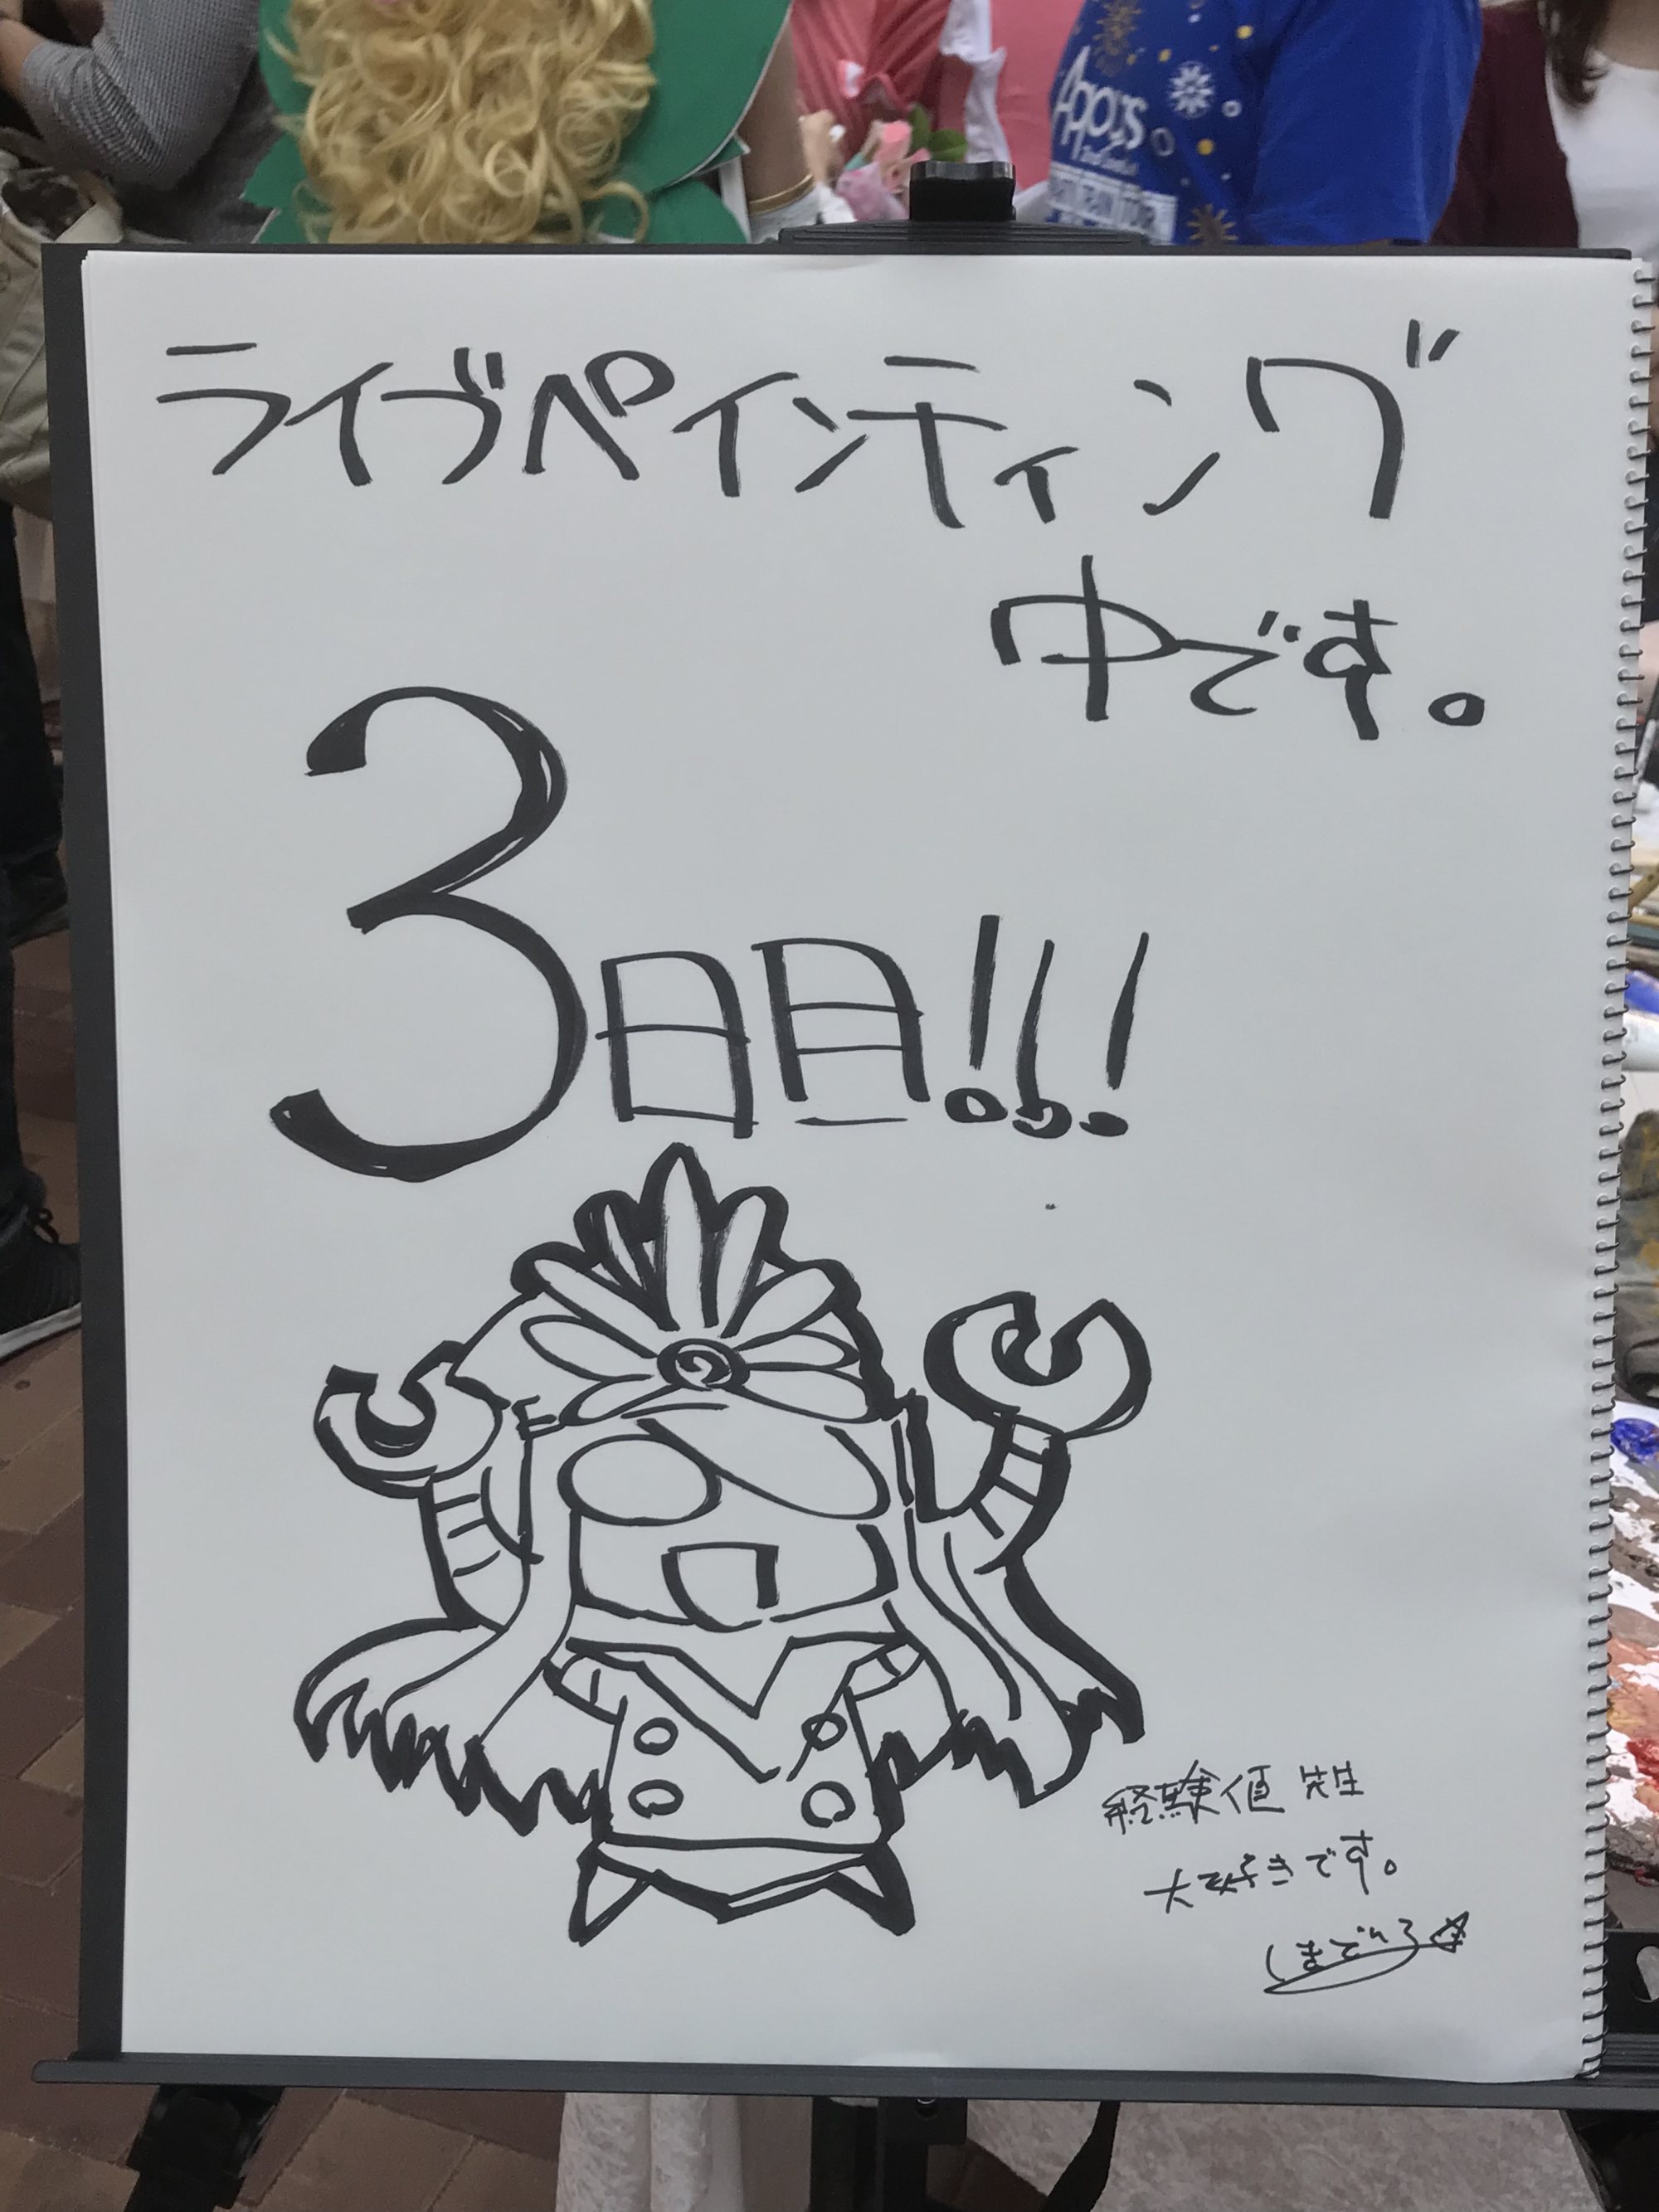 Apolis
ライブペインティング
中です。
3日目!!!
経験値先生
大好きです。